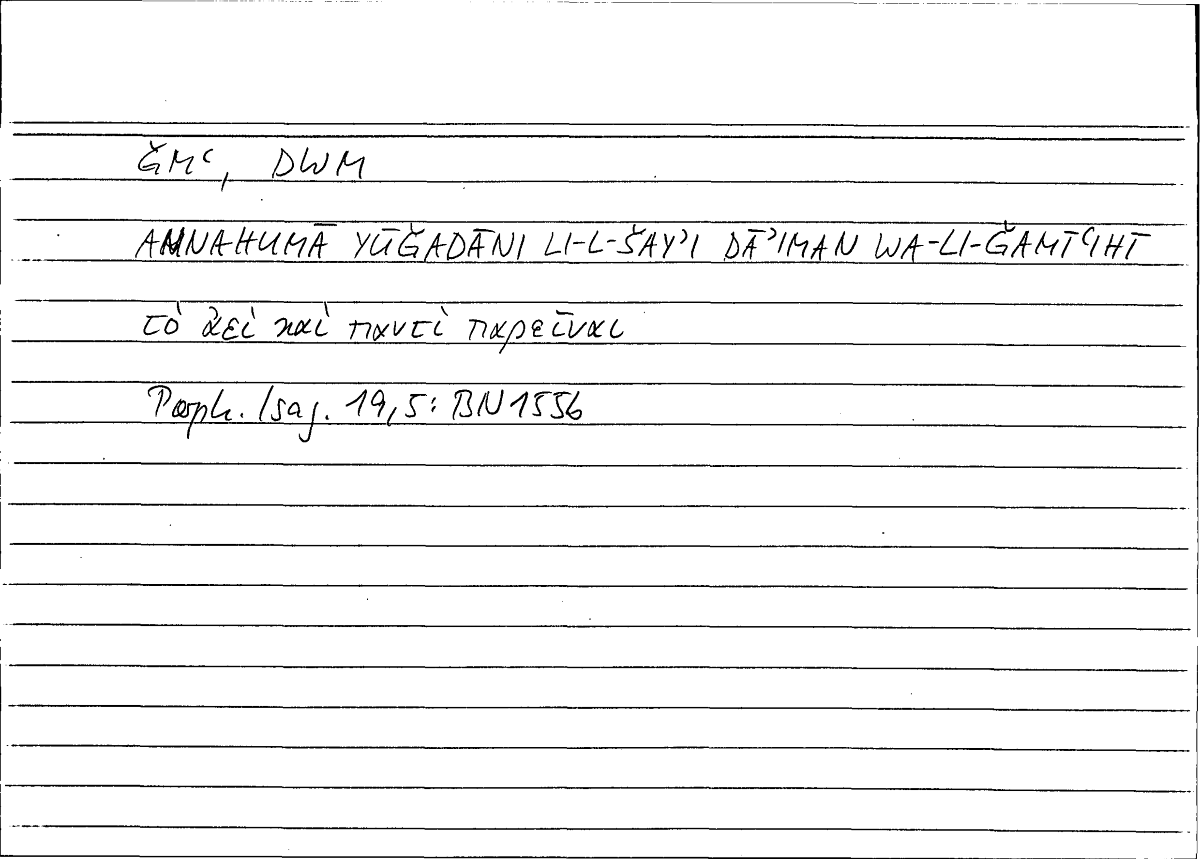 ǦMʿ, DWM
ANNAHUMĀ YŪǦADĀNI LI-L-ŠAYʾI DĀʾIMAN WA-LI-ǦAMĪʿIHĪ
τὸ ἀεὶ καὶ παντὶ παρεῖναι
Porph. Isag. 19,5: BN1556